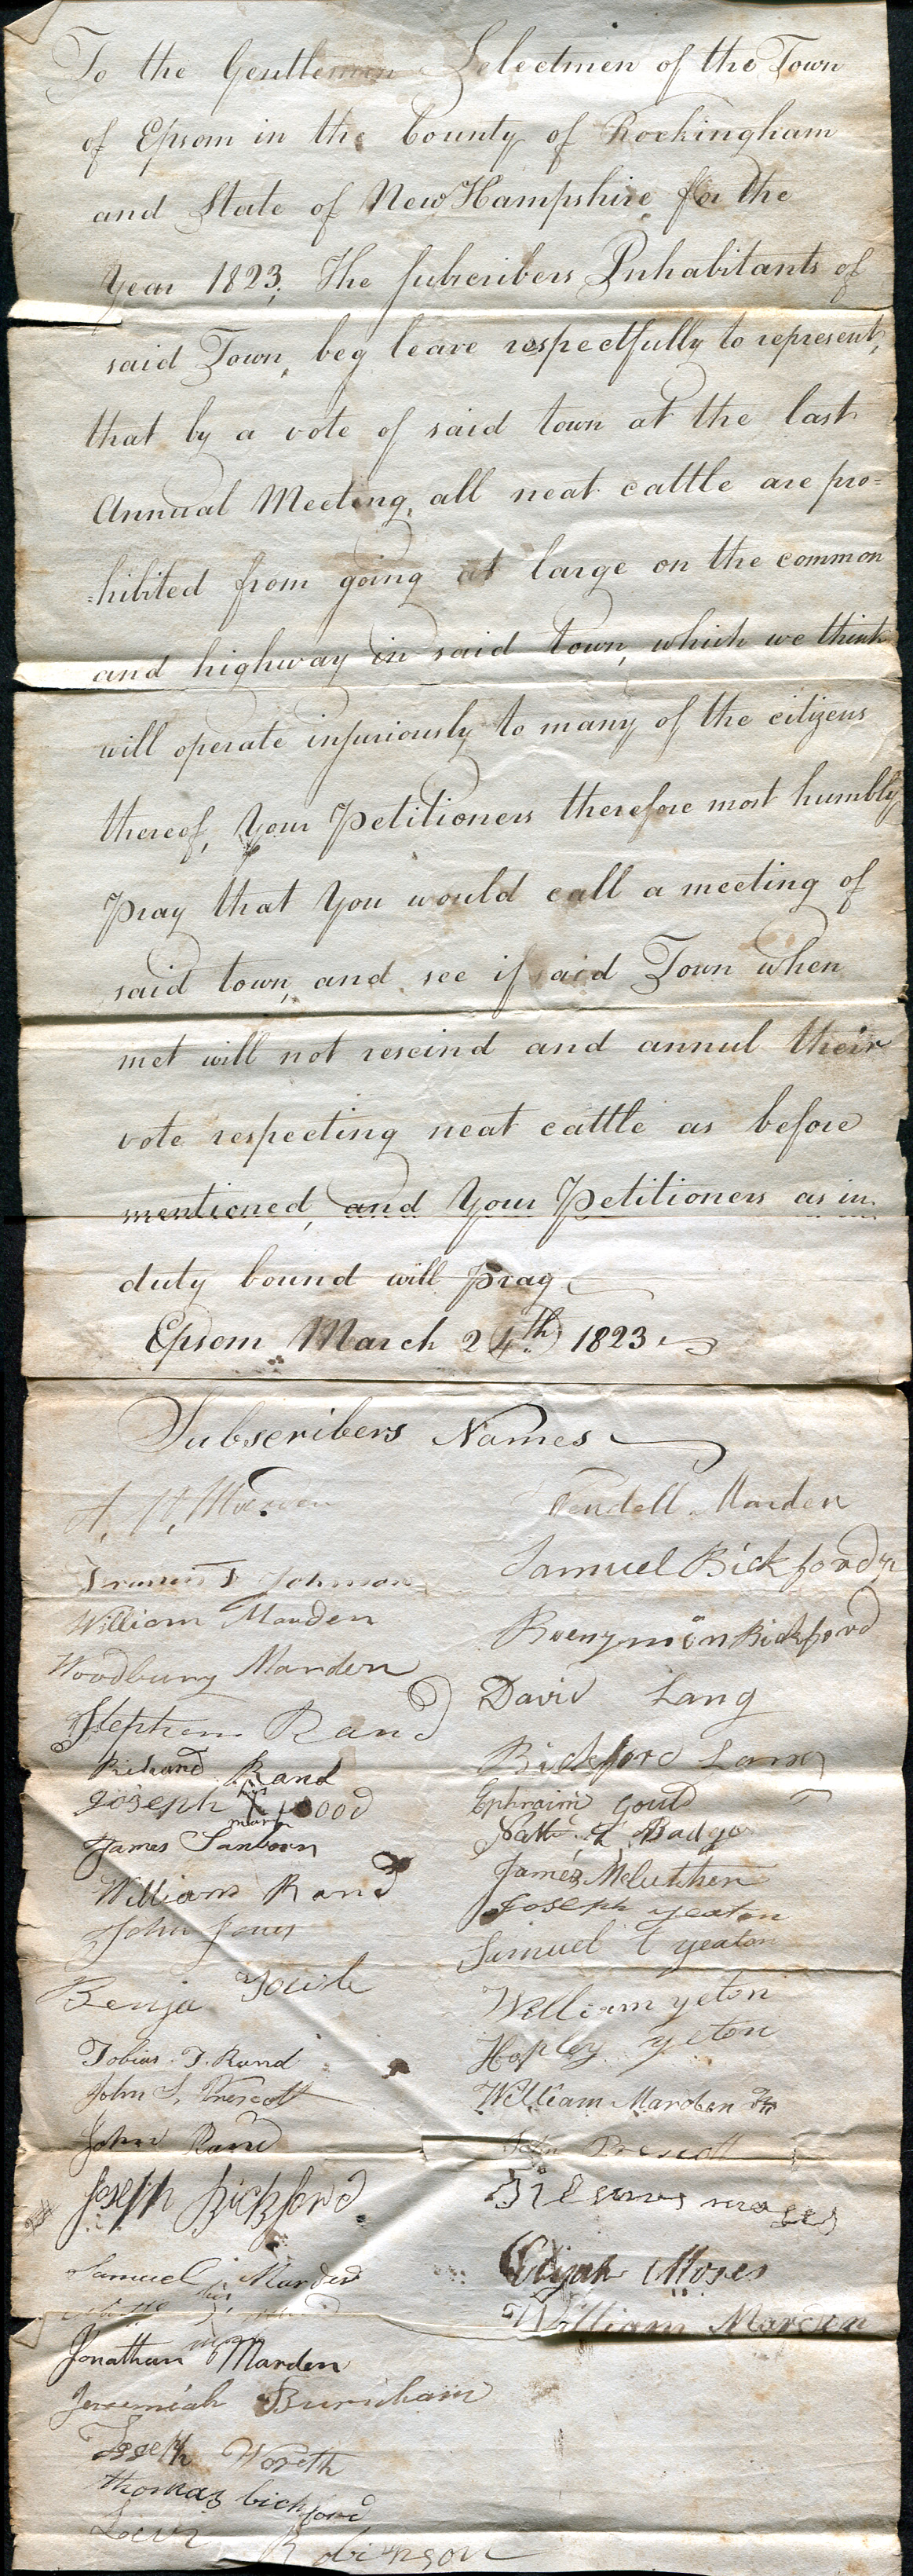 To the Gentlemen Selectmen of the Town
of Epsom in the County of Rockingham
and State of New Hampshire for the
Year 1823; The subscribers Inhabitants of
said Town, beg leave respectfully to represent,
that by a vote of said town at the last
Annual Meeting, all neat cattle are pro=
=hibited from going at large on the common
and highway in said town, which we think
will operate injuriously to many of the citizens
thereof, Your Petitioners therefore most humbly
Pray that You would call a meeting of
said town, and see if said Town when
met will not rescind and annul their
vote respecting neat cattle as before
mentioned, and Your Petitioners as in
duty bound will pray
Epsom March 24th 1823
Subscribers Names
A.
Johnson
William Marden
Woodbury Marden
Stephen Rand
Richard Rand
Joseph his X mark Wood
James Sanborn
William Rand
John Jones
Benja Towle
Tobias T. Rand
John S. Prescott
John Rand
Joseph Bickford
Samuel Marden
his
Jonathan Marden
Jeremiah Burnham
Joseph Worth
thomas bickford
Levi Robinson
Marden
Samuel Bickford Jr
Bickford
David Lang
Bickford Lang
Ephraim Gould
Badger
James McCutchen
Joseph yeaton
Samuel yeaton
William yeton
Hopley yeton
William Marden Jr
John Prescott
moses
Elijah Moses
William Marden